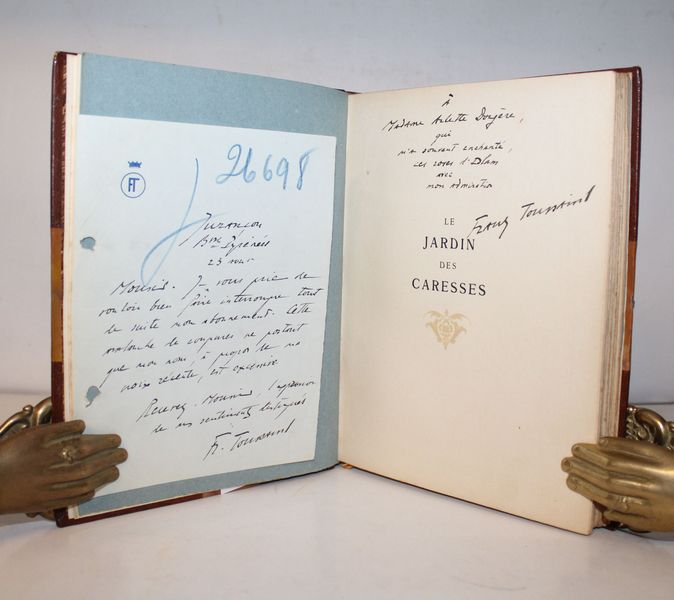 FT
26698
Jurançon
Bses Pyrénées
23
Monsieur. Je vous prie de
vouloir bien faire interrompre tout
de suite mon abonnement. Cette
avalanche de coupures ne portant
que mon nom, à propos de ma
récente, est excessive
Recevez, Monsieur, l'expression
de mes sentiments distingués
Fr. Toussaint
À
Madame Arlette Dorgère,
qui
m'a souvent enchanté,
ces roses d'Islam
avec
mon admiration
Franz Toussaint
LE
JARDIN
DES
CARESSES